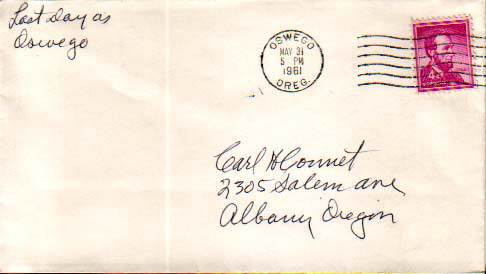 Last Day as
Oswego
OSWEGO
MAY 31
5 PM
1961
OREG.
4¢
Carl H Connet
2305 Salem ave
Albany Oregon